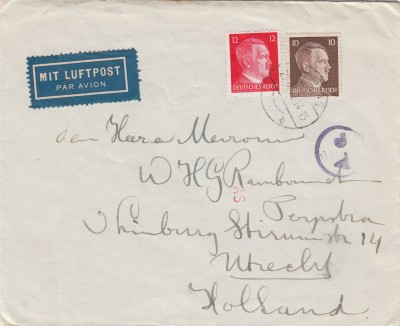 MIT LUFTPOST
PAR AVION
12 12
DEUTSCHES REICH
10 10
DEUTSCHES REICH
den Heere Mevrouw
W H G
Stirumstr 14
Utrecht
Holland.